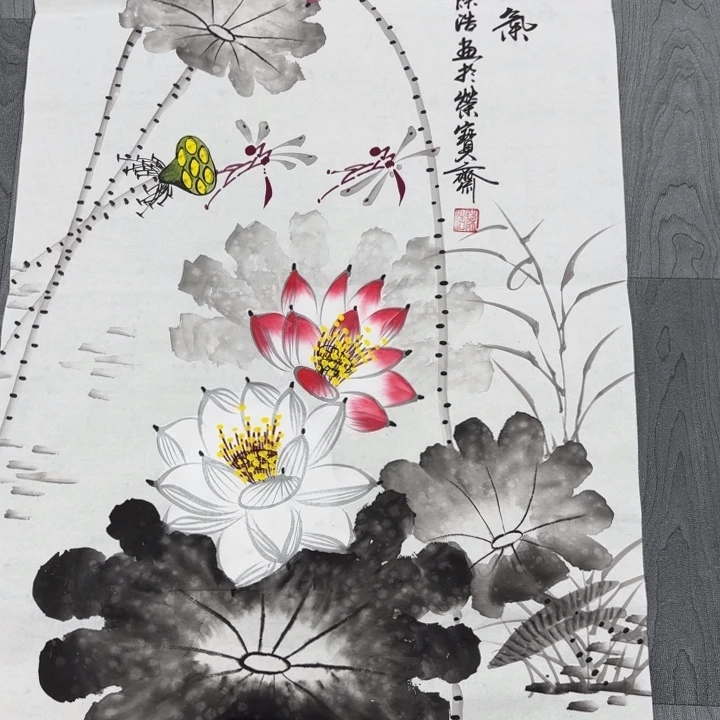 氣
浩画於榮寶齋